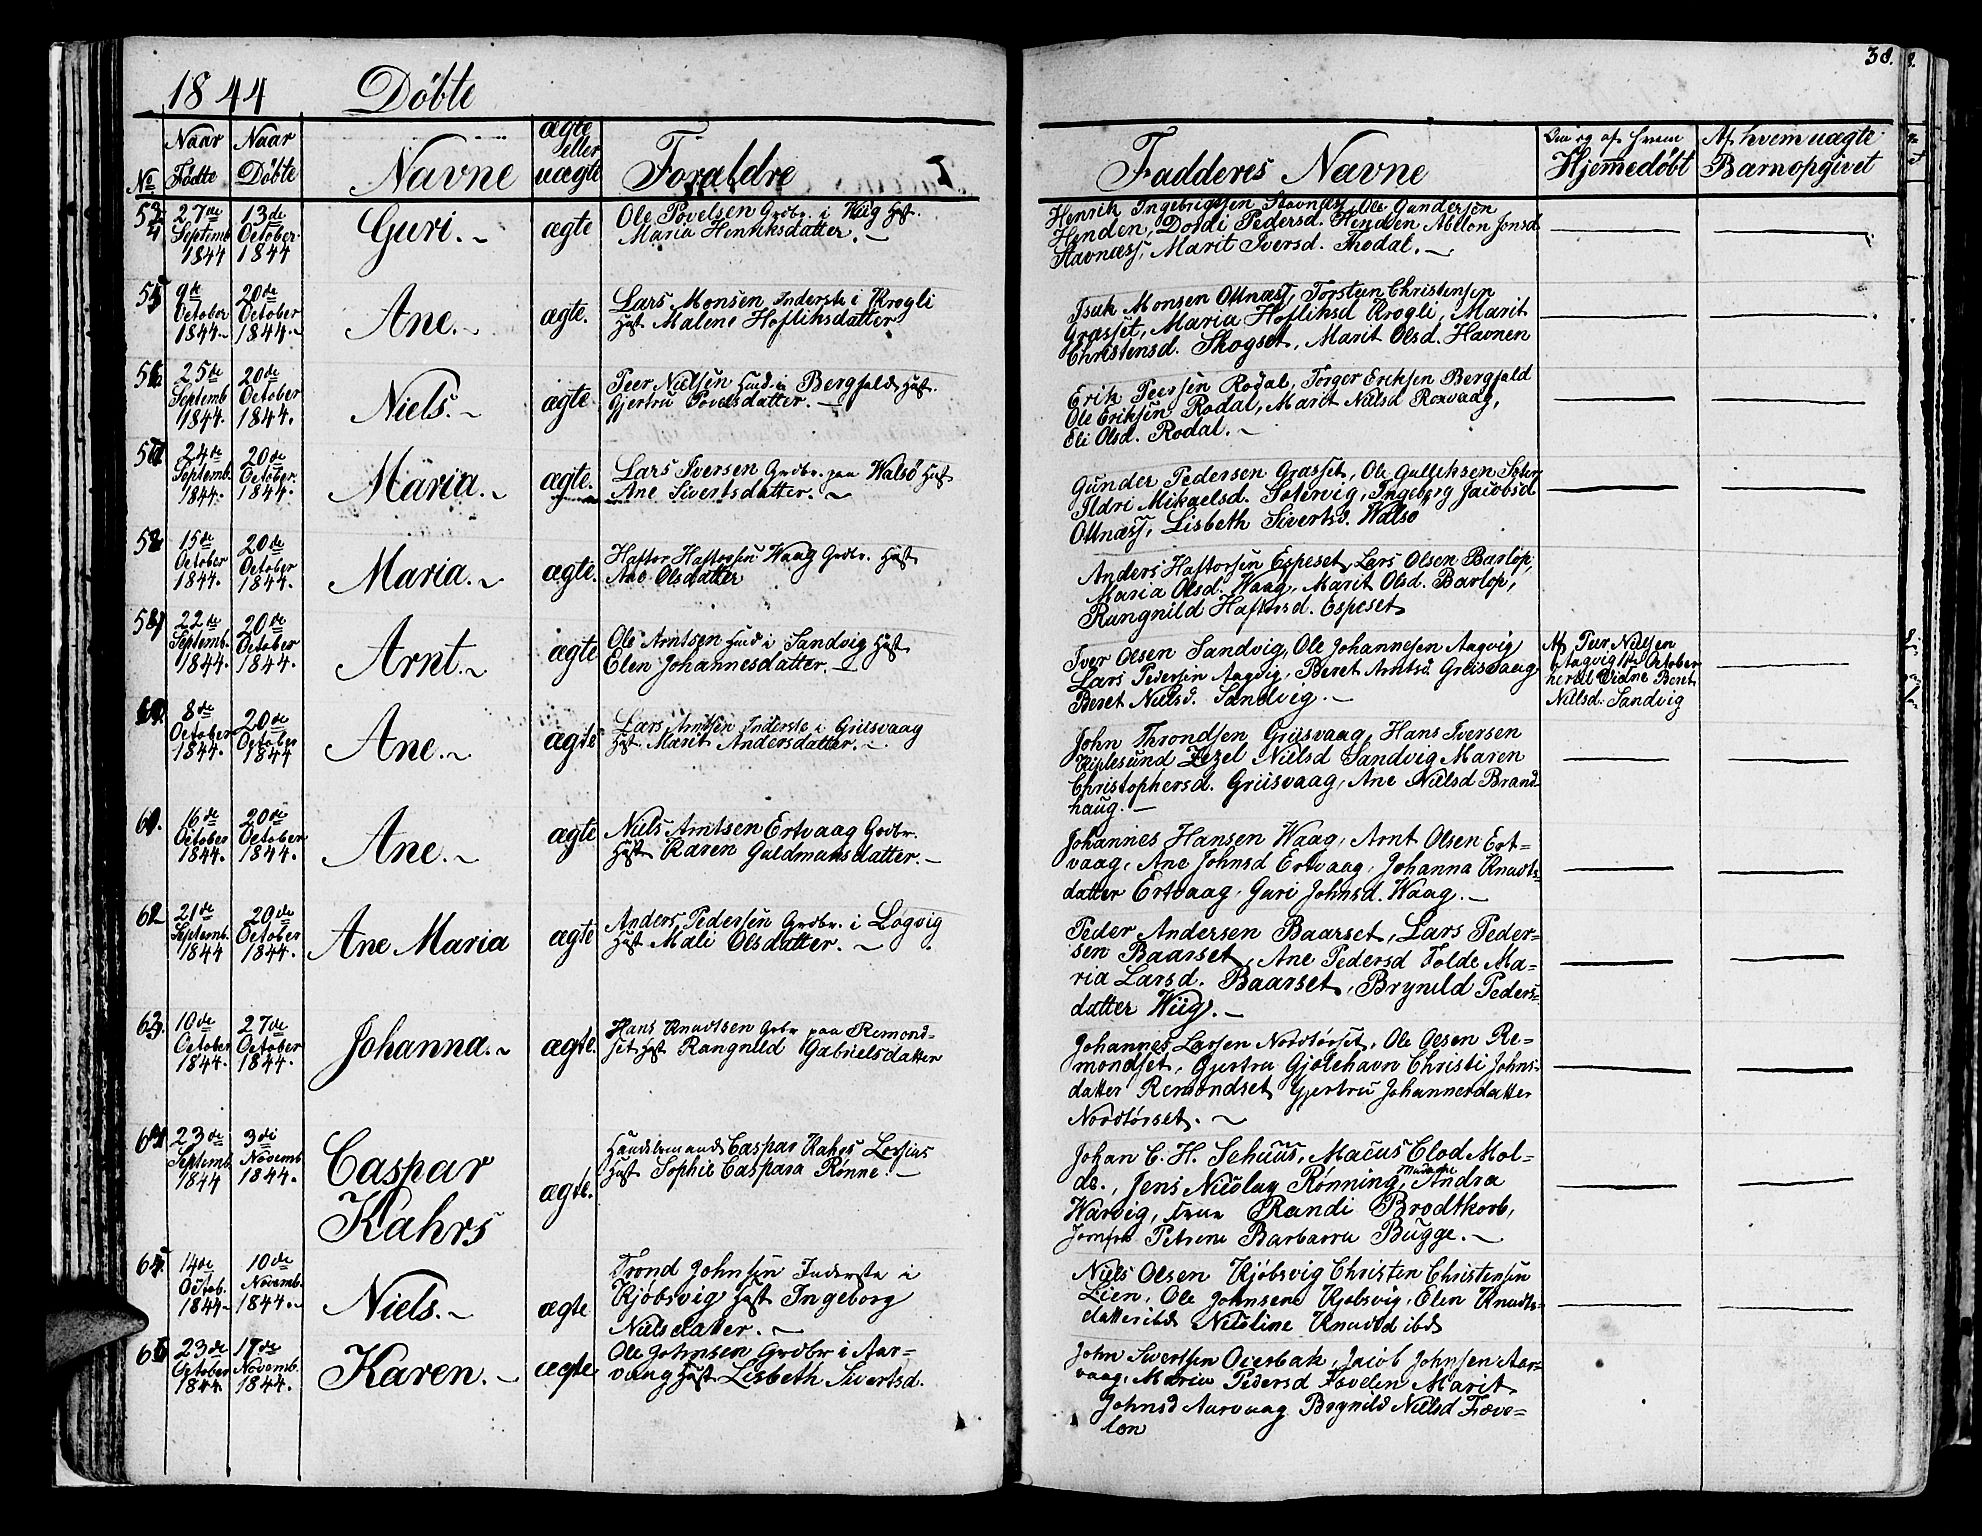 1844 Döbte
38.
No
Naar Födte
Naar Döbte
Navne
ægte eller uægte
Forældre
Fadderes Navne
Om og af hvem Hjemmedöbt
Af hvem uægte Barn opgivet
27de Septemb. 1844
13de October 1844
Guri.
ægte
Ole Povelsen Grdbr. i Wiig Hust.
Maria Henriksdatter.
Henrik Ingebrigtsen Stavnæss, Ole Gundersen
Henden, Dordi Pedersd. Henden Abelon Jonsd
Stavnæss, Marit Iversd. Thodal.
55
9de October 1844
20de October 1844.
Ane.
ægte.
Lars Monsen Inderste i Krogli
Hust Malene Hoflihsdatter
Isak Monsen Ottnæss, Torsteen Christensen
Græsset, Maria Hoflihsd Krogli, Marit
Christensd. Skogset, Marit Olsd. Havnen
25de Septemb 1844.
20de October 1844.
Niels.
ægte
Peer Nielsen Husd. i Bergfald Hust.
Gjertru Povelsdatter.
Erik Peersen Rodal, Torger Eriksen Bergfald
Ole Eriksen Rodal, Marit Nielsd Roxvaag,
Eli Olsd. Rodal.
24de Septemb. 1844.
20de October. 1844.
Maria.
ægte.
Lars Iversen Grdbr. paa Walsö Hust
Ane Sivertsdatter.
Gunder Pedersen Græsset, Ole Gulliksen
Ildri Mikaelsd. Settervig, Ingeborg Jacobsd
Ottnæss, Lisbeth Sivertsd. Walsö
15de October 1844.
20de October 1844.
Maria.
ægte.
Haftor Haftorsen Waag Grdbr. Hust
Ane Olsdatter
Anders Haftorsen Espeset, Lars Olsen Barlop,
Maria Olsd. Waag, Marit Olsd. Barlop,
Rangnild Haftorsd. Espeset
22de Septemb. 1844.
20de October 1844.
Arnt.
ægte
Ole Arntsen Husd i Sandvig Hust
Elen Johannesdatter.
Iver Olsen Sandvig, Ole Johannesen Aagvig
Lars Pedersen Aagvig, Beret Arntsd. Griisvaag
Beret Nielsd. Sandvig.
Af Peer Nielsen
Aagvig 1ste October
hertil Vidne Beret
Nielsd. Sandvig
8de October 1844.
20de October 1844
Ane.
ægte
Lars Arntsen Inderste i Griisvaag
Hust. Marit Andersdatter.
John Throndsen Griisvaag, Hans Iversen
Zezel Nielsd Sandvig Maren
Christophersd. Griisvaag, Ane Nielsd Brand
haug.
16de October 1844.
20de October 1844.
Ane.
ægte
Niels Arntsen Ertvaag Grdbr.
Hust Karen Guldmansdatter.
Johannes Hansen Waag, Arnt Olsen Ert=
vaag, Ane Johnsd Ertvaag, Johanna Knudts=
datter Ertvaag, Guri Johnsd. Waag.
62
21de Septemb. 1844
20de October 1844.
Ane Maria
ægte
Anders Pedersen Grdbr. i Logvig
Hust Mali Olsdatter.
Peder Andersen Baarset, Lars Peder=
sen Baarset, Ane Pedersd Folde Ma=
ria Larsd. Baarset, Brynild Peders=
datter Wiig.
63.
10de October 1844.
27de October 1844.
Johanna.
ægte.
Hans Knudtsen Grbr paa Remond=
set Hust Rangnild Gabrielsdatter
Johannes Larsen Nordtörset, Ole Olsen Re=
mondset, Gjertru Gjölehavn Christi Johns=
datter Remondset Gjertru Johannesdatter
Nordtörset.
64
23de Septemb. 1844
3di Novemb 1844.
Caspar Kahrs
ægte.
Handelsmand Caspar Kahrs Lossius
Hust Sophie Caspara Rönne.
Johan C. H. Schuus, Macus Clod Mol=
de., Jens Nicolay Rönning, Madame Andrea
Warvig, Frue Randi Brodtkorb,
Jomfru Petrine Barbarra Bugge.
65
14de Octob. 1844
10de Novemb. 1844.
Niels.
ægte
Trond Johnsen Inderste i
Kjöbsvig Hust Ingeborg
Nielsdatter.
Niels Olsen Kjöbsvig Christen Christensen
Lien, Ole Johnsen Kjöbsvig, Elen Knudts=
datter ibd Nicoline Knudtd ibd
66
23de October 1844
17de Novemb. 1844.
Karen.
ægte
Ole Johnsen Grdbr i Aar=
vaag Hust Lisbeth Sivertsd.
John Sivertsen Overbak, Jacob Johnsen Aar=
vaag, Maria Pedersd Favelen Marit
Johnsd Aarvaag Brynild Nielsd Fæve=
len